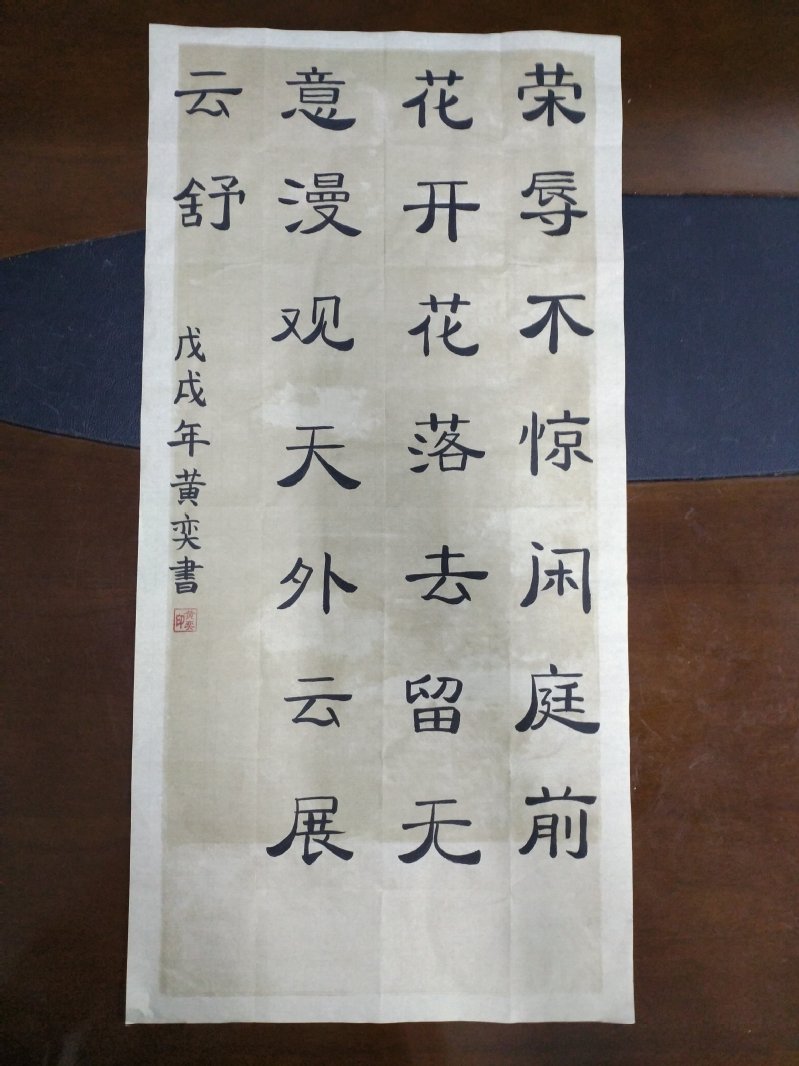 荣辱不惊闲庭前
花开花落去留无
意漫观天外云展
云舒
戊戌年黄奕書
黄奕印